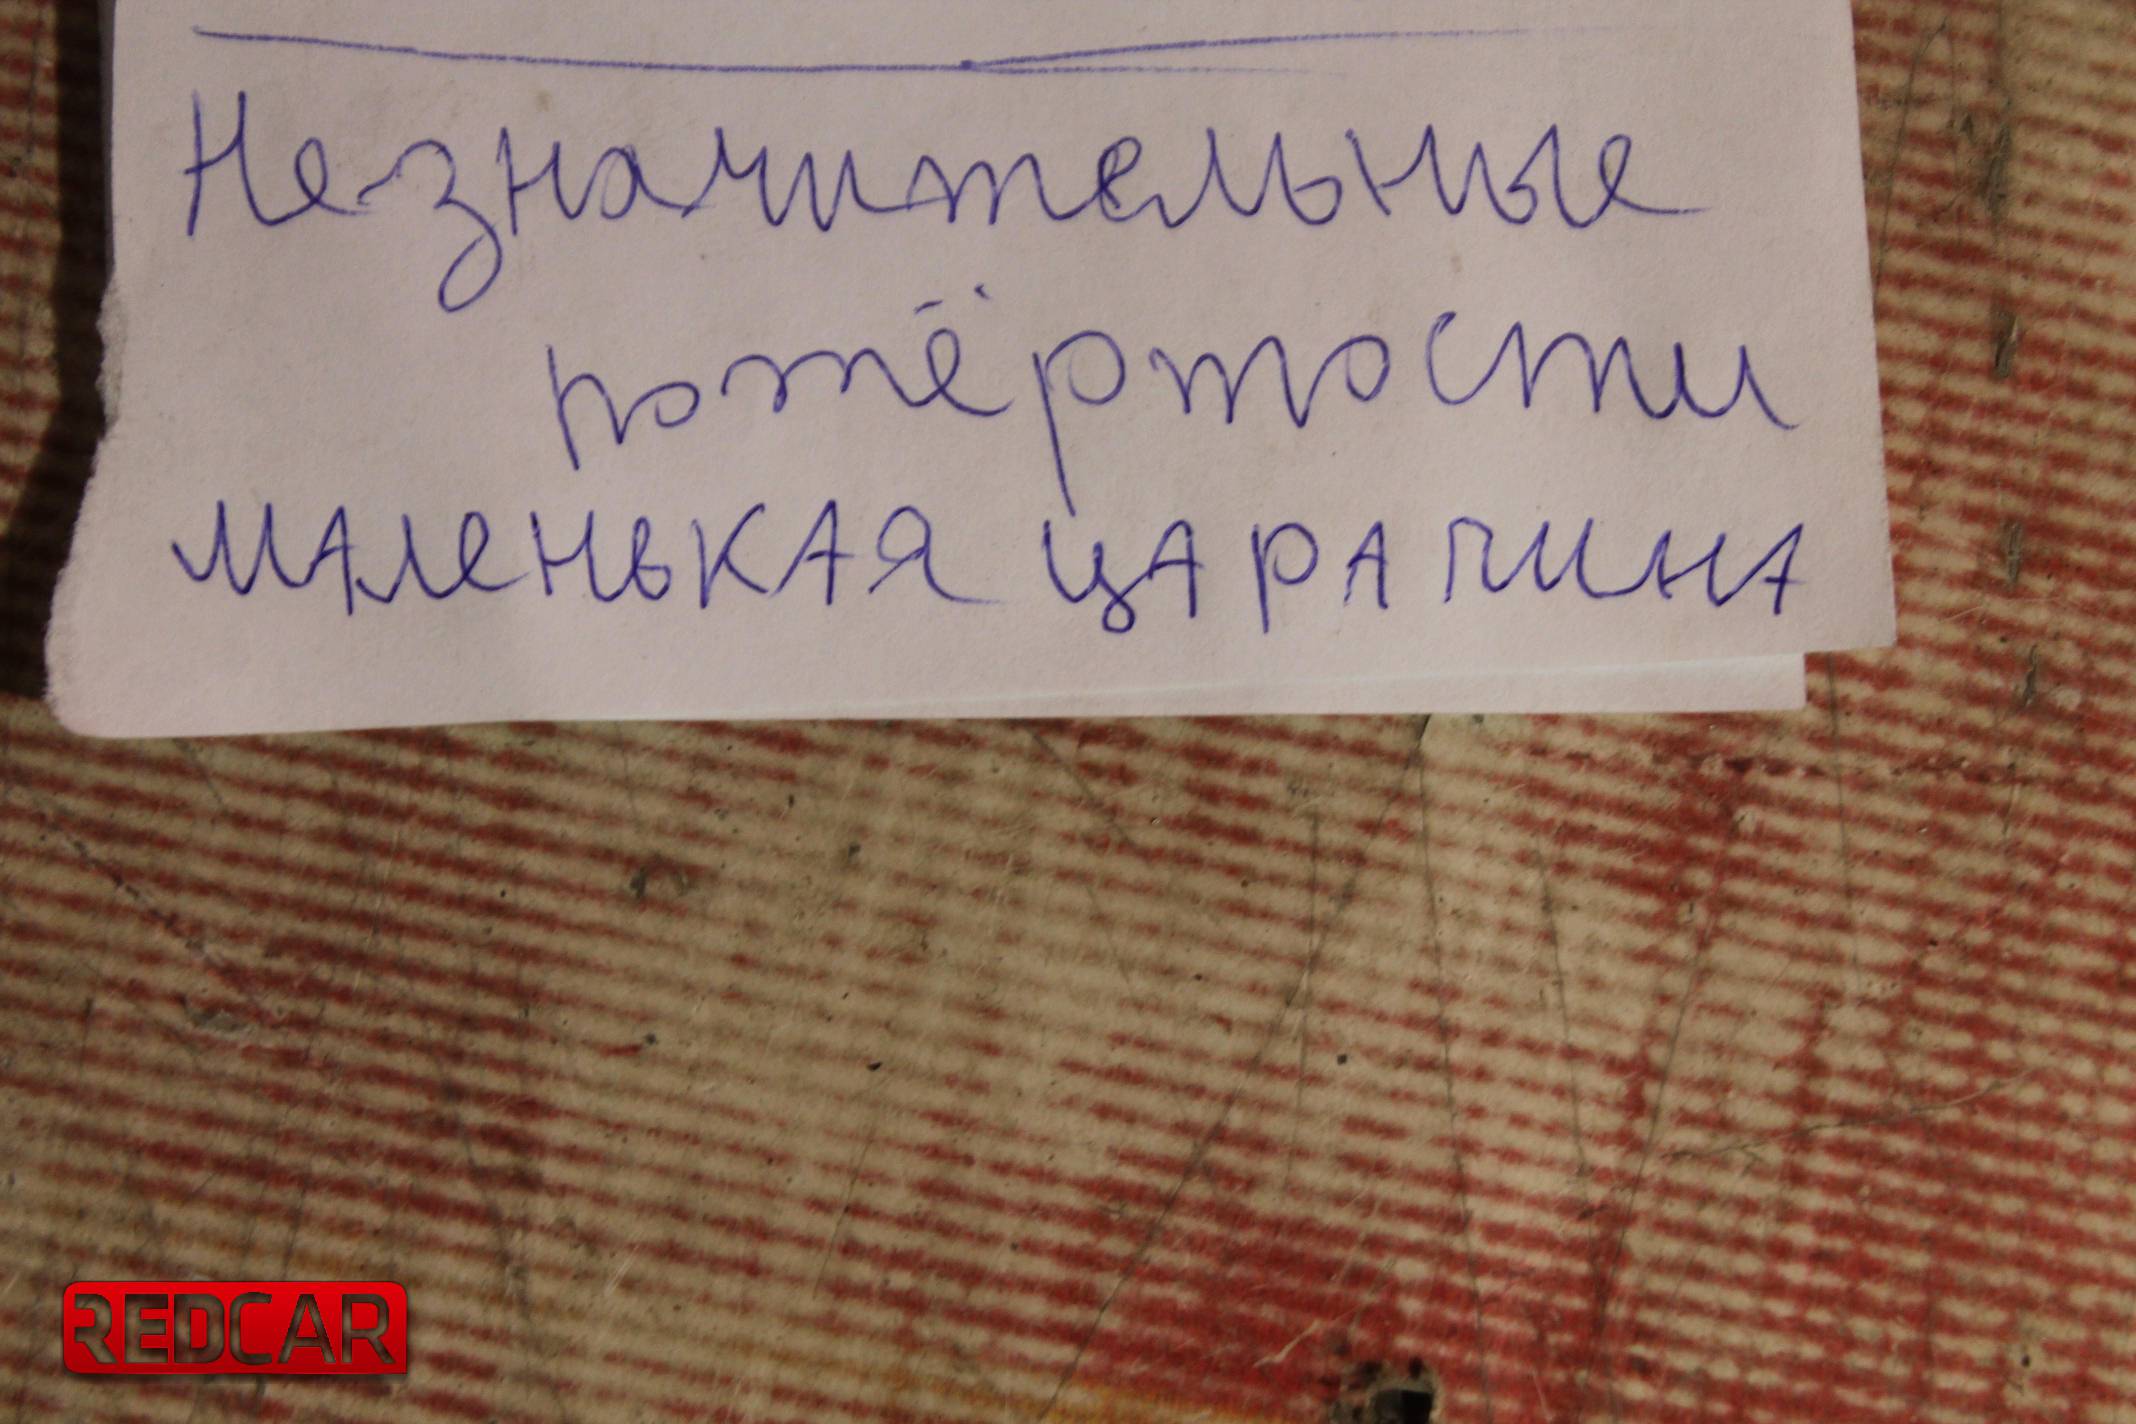 Незначительные
потёртости
маленькая царапина
REDCAR